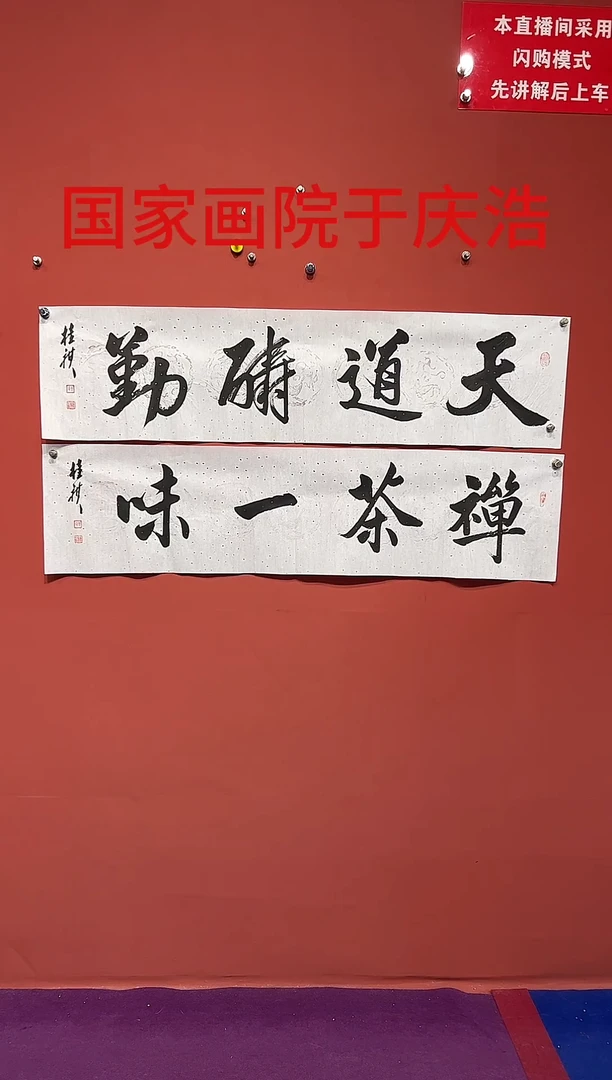 本直播间采用
闪购模式
先讲解后上车
国家画院于庆浩
天道酬勤
禪茶一味